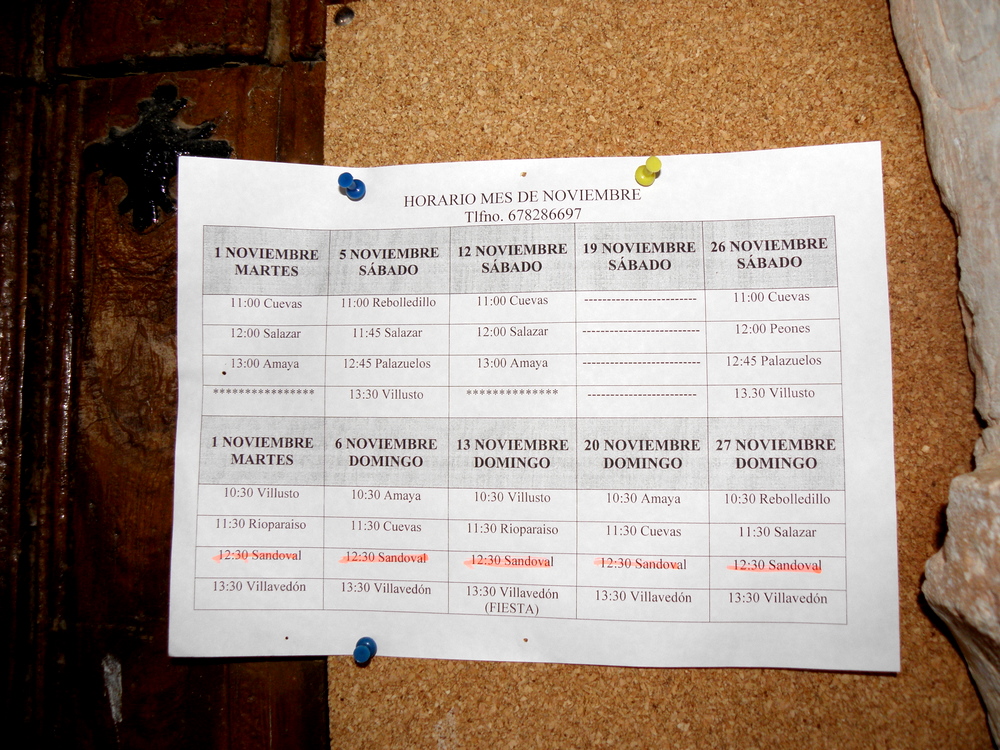 HORARIO MES DE NOVIEMBRE
Tlfno. 678286697
1 NOVIEMBRE MARTES 5 NOVIEMBRE SÁBADO 12 NOVIEMBRE SÁBADO 19 NOVIEMBRE SÁBADO 26 NOVIEMBRE SÁBADO
11:00 Cuevas 11:00 Rebolledillo 11:00 Cuevas -------------------------- 11:00 Cuevas
12:00 Salazar 11:45 Salazar 12:00 Salazar --------------------------- 12:00 Peones
13:00 Amaya 12:45 Palazuelos 13:00 Amaya --------------------------- 12:45 Palazuelos
**************** 13:30 Villusto ************** ------------------------- 13.30 Villusto
1 NOVIEMBRE MARTES 6 NOVIEMBRE DOMINGO 13 NOVIEMBRE DOMINGO 20 NOVIEMBRE DOMINGO 27 NOVIEMBRE DOMINGO
10:30 Villusto 10:30 Amaya 10:30 Villusto 10:30 Amaya 10:30 Rebolledillo
11:30 Rioparaiso 11:30 Cuevas 11:30 Rioparaiso 11:30 Cuevas 11:30 Salazar
12:30 Sandoval 12:30 Sandoval 12:30 Sandoval 12:30 Sandoval 12:30 Sandoval
13:30 Villavedón 13:30 Villavedón 13:30 Villavedón (FIESTA) 13:30 Villavedón 13:30 Villavedón